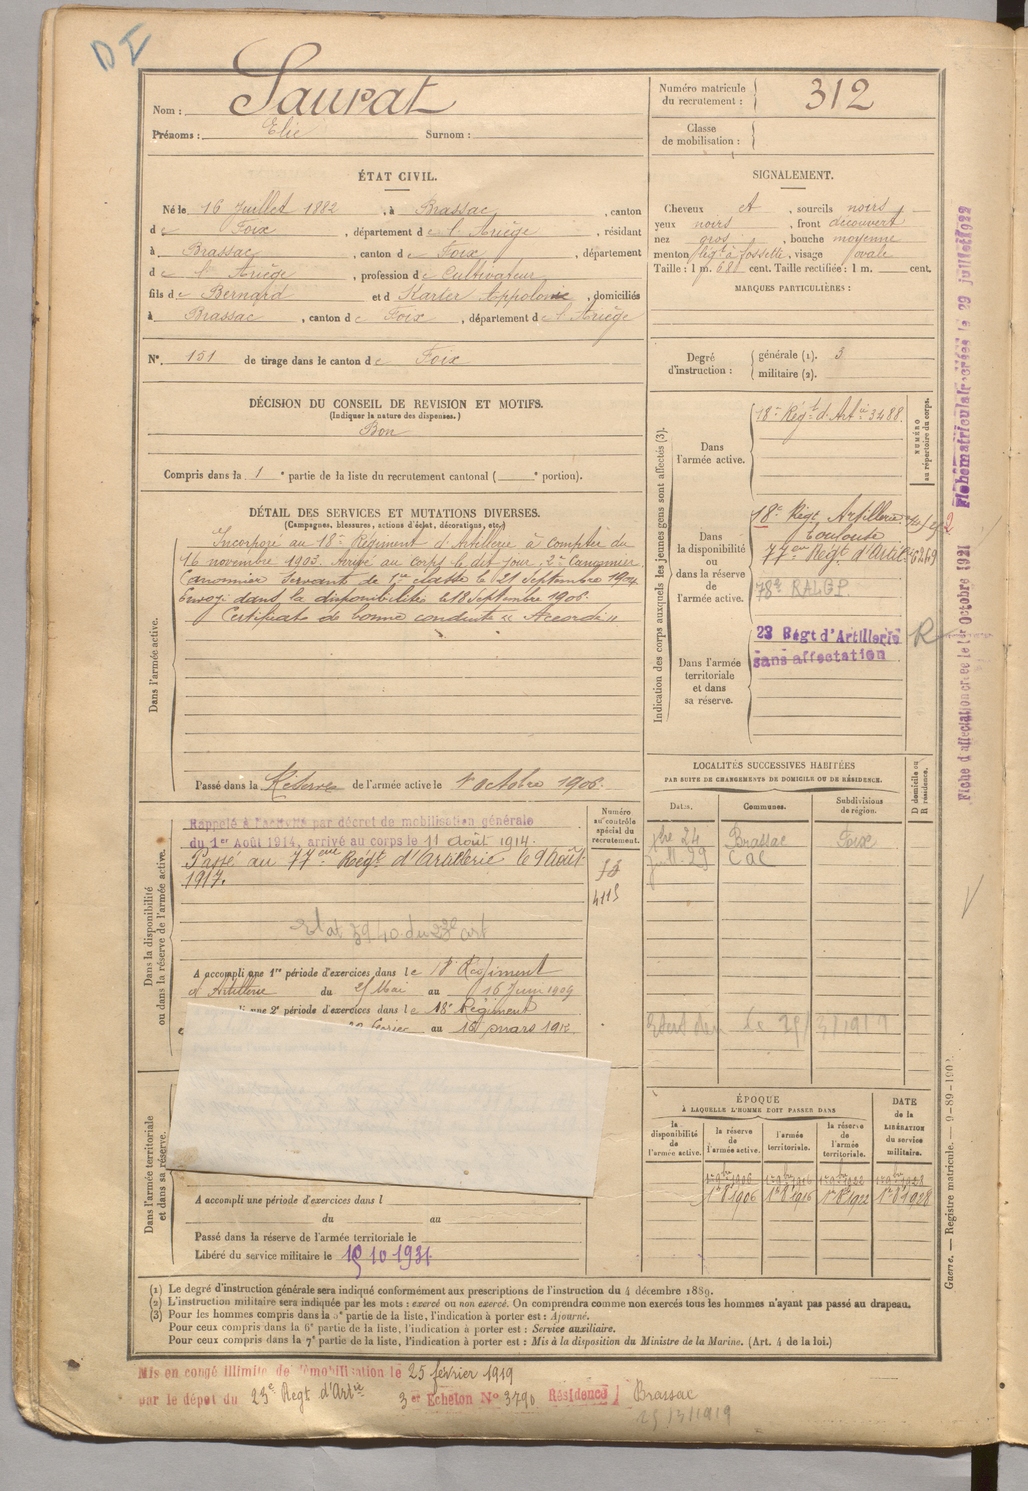 DI
Nom : Saurat
Prénoms : Elie Surnom :
Numéro matricule du recrutement : 312
Classe de mobilisation :
ÉTAT CIVIL.
Né le 16 Juillet 1882, à Brassac, canton
de Foix, département de l'Ariège, résidant
à Brassac, canton de Foix, département
de l'Ariège, profession de Cultivateur
fils de Bernard et d Karter Appolonie, domiciliés
à Brassac, canton de Foix, département de l'Ariège
N° 151 de tirage dans le canton de Foix
SIGNALEMENT.
Cheveux ct, sourcils noirs
yeux noirs, front découvert
nez gros, bouche moyenne
menton à fossette, visage ovale
Taille : 1 m. 68 cent. Taille rectifiée : 1 m. cent.
MARQUES PARTICULIÈRES :
Degré d'instruction : générale (1). 3
militaire (2).
DÉCISION DU CONSEIL DE REVISION ET MOTIFS.
(Indiquer la nature des dispenses.)
Bon
Compris dans la 1e partie de la liste du recrutement cantonal ( e portion).
DÉTAIL DES SERVICES ET MUTATIONS DIVERSES.
(Campagnes, blessures, actions d'éclat, décorations, etc.)
Dans l'armée active.
Incorporé au 18e Régiment d'Artillerie à compter du
16 novembre 1903. Arrivé au corps le dit jour, 2e Canonnier
Canonnier Servant de 1re classe le 21 septembre 1904
Envoyé dans la disponibilité le 18 Septembre 1906
Certificat de bonne conduite "Accordé"
Passé dans la Réserve de l'armée active le 1er octobre 1906.
Indication des corps auxquels les jeunes gens sont affectés (3).
NUMÉRO au répertoire du corps.
Dans l'armée active. 18e Régt d'Artie 3488
Dans la disponibilité ou dans la réserve de l'armée active.
18e Régt Artillerie
Toulouse
77eme Régt d'Artie
78e RALGP
Dans l'armée territoriale et dans sa réserve.
23 Régt d'Artillerie R
sans affectation
Fiche d'affectation créée le 1er Octobre 1921 Fiche matriculaire créée le 29 juillet 1922
LOCALITÉS SUCCESSIVES HABITÉES
PAR SUITE DE CHANGEMENTS DE DOMICILE OU DE RÉSIDENCE.
Dates. Communes. Subdivisions de région. D domicile ou R résidence.
24 Brassac Foix
juill. 29
le 25/3/1919
Dans la disponibilité ou dans la réserve de l'armée active.
Numéro au contrôle spécial du recrutement.
4115
Rappelé à l'activité par décret de mobilisation générale
du 1er Août 1914, arrivé au corps le 11 août 1914.
Passé au 77eme Régt d'Artillerie le 9 Août
1917.
A accompli une 1re période d'exercices dans le 18e Régiment
d'Artillerie du 25 Mai au 16 Juin 1909
li une 2e période d'exercices dans le 18e Régiment
Février au 16 mars 1912
Dans l'armée territoriale et dans sa réserve.
A accompli une période d'exercices dans l
du au
Passé dans la réserve de l'armée territoriale le
Libéré du service militaire le 10 10 1931
ÉPOQUE
À LAQUELLE L'HOMME DOIT PASSER DANS
la disponibilité de l'armée active. la réserve de l'armée active. l'armée territoriale. la réserve de l'armée territoriale.
DATE de la LIBÉRATION du service militaire.
1er 8 1906 1er 8 1916 1er 8 1922 1er 8 1928
Guerre. — Registre matricule. — 9-89-1902
(1) Le degré d'instruction générale sera indiqué conformément aux prescriptions de l'instruction du 4 décembre 1889.
(2) L'instruction militaire sera indiquée par les mots : exercé ou non exercé. On comprendra comme non exercés tous les hommes n'ayant pas passé au drapeau.
(3) Pour les hommes compris dans la 5e partie de la liste, l'indication à porter est : Ajourné.
Pour ceux compris dans la 6e partie de la liste, l'indication à porter est : Service auxiliaire.
Pour ceux compris dans la 7e partie de la liste, l'indication à porter est : Mis à la disposition du Ministre de la Marine. (Art. 4 de la loi.)
Mis en congé illimité de démobilisation le 25 février 1919
par le dépôt du 23e Régt d'Artie 3er Echelon N° 3790 Résidence Brassac
25/3/1919